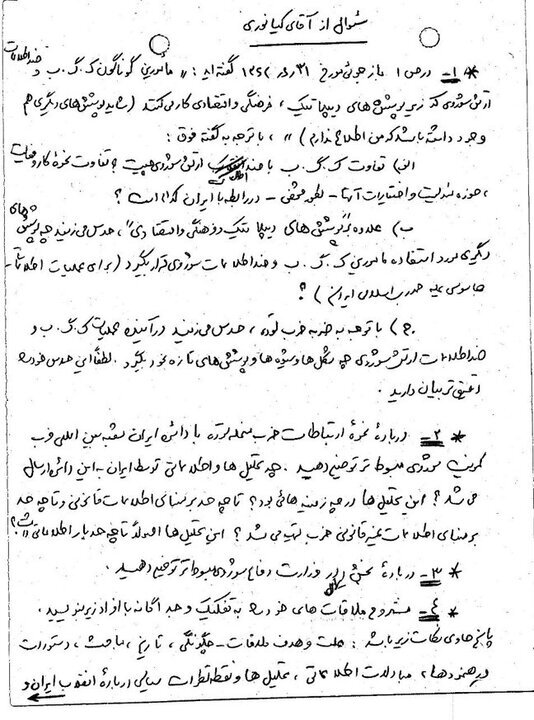 سئوال از آقای کیانوری
* ۱- درص ۱ بازجوئی مورخ ۳۱ر۲ر۱۳۶۲ گفته اید: " مأمورین گوناگون ک.گ.ب و ضد اطلاعات
ارتش شوروی که زیر پوشش های دیپلماتیک، فرهنگی و اقتصادی کار می کنند (شاید پوشش های دیگری هم
وجود داشته باشد که من اطلاع ندارم) "، با توجه به گفته فوق:
الف) تفاوت ک.گ.ب با ضد اطلاعات ارتش شوروی چیست و تفاوت نحوۀ کار و فعالیت
، حوزه مسئولیت و اختیارات آنها - بطور مشخص - در رابطه با ایران کدام است؟
ب) علاوه بر "پوشش های دیپلماتیک و فرهنگی و اقتصادی"، حدس می زنید چه پوشش های
دیگری مورد استفاده مامورین ک.گ.ب و ضد اطلاعات شوروی قرار بگیرد (برای عملیات اطلاعاتی-
جاسوسی علیه جمهوری اسلامی ایران)؟
ج) با توجه به ضربه حزب توده، حدس می زنید در آینده عملیات ک.گ.ب و
ضد اطلاعات ارتش شوروی چه شکل ها و شیوه ها و پوشش های تازه بخود بگیرد. لطفاً این حدس خود را
دقیق تر بیان دارید.
* ۲- دربارۀ نحوۀ ارتباطات حزب منحله توده با دائره ایران شعبه بین المللی حزب
کمونیست شوروی مبسوط تر توضیح دهید. چه تحلیل ها و اطلاعاتی توسط ایران به این دائره ارسال
می شد؟ این تحلیل ها در چه زمینه هائی بود؟ تا چه حد بر مبنای اطلاعات قانونی و تا چه حد
بر مبنای اطلاعات غیر قانونی حزب تهیه می شد؟ این تحلیل ها اصولاً تا چه حد بار اطلاعاتی داشت؟
* ۳- دربارۀ بخش وزارت دفاع شوروی مبسوط تر توضیح دهید.
* ۴- مشروح ملاقات های خود را به تفکیک و جداگانه با افراد زیر بنویسید.
پاسخ حاوی نکات زیر باشد: علت و هدف ملاقات - چگونگی، تاریخ، مباحث، دستورات
و رهنمودها، مبادلات اطلاعاتی، تحلیل ها و نقطه نظرات سیاسی دربارۀ انقلاب ایران و